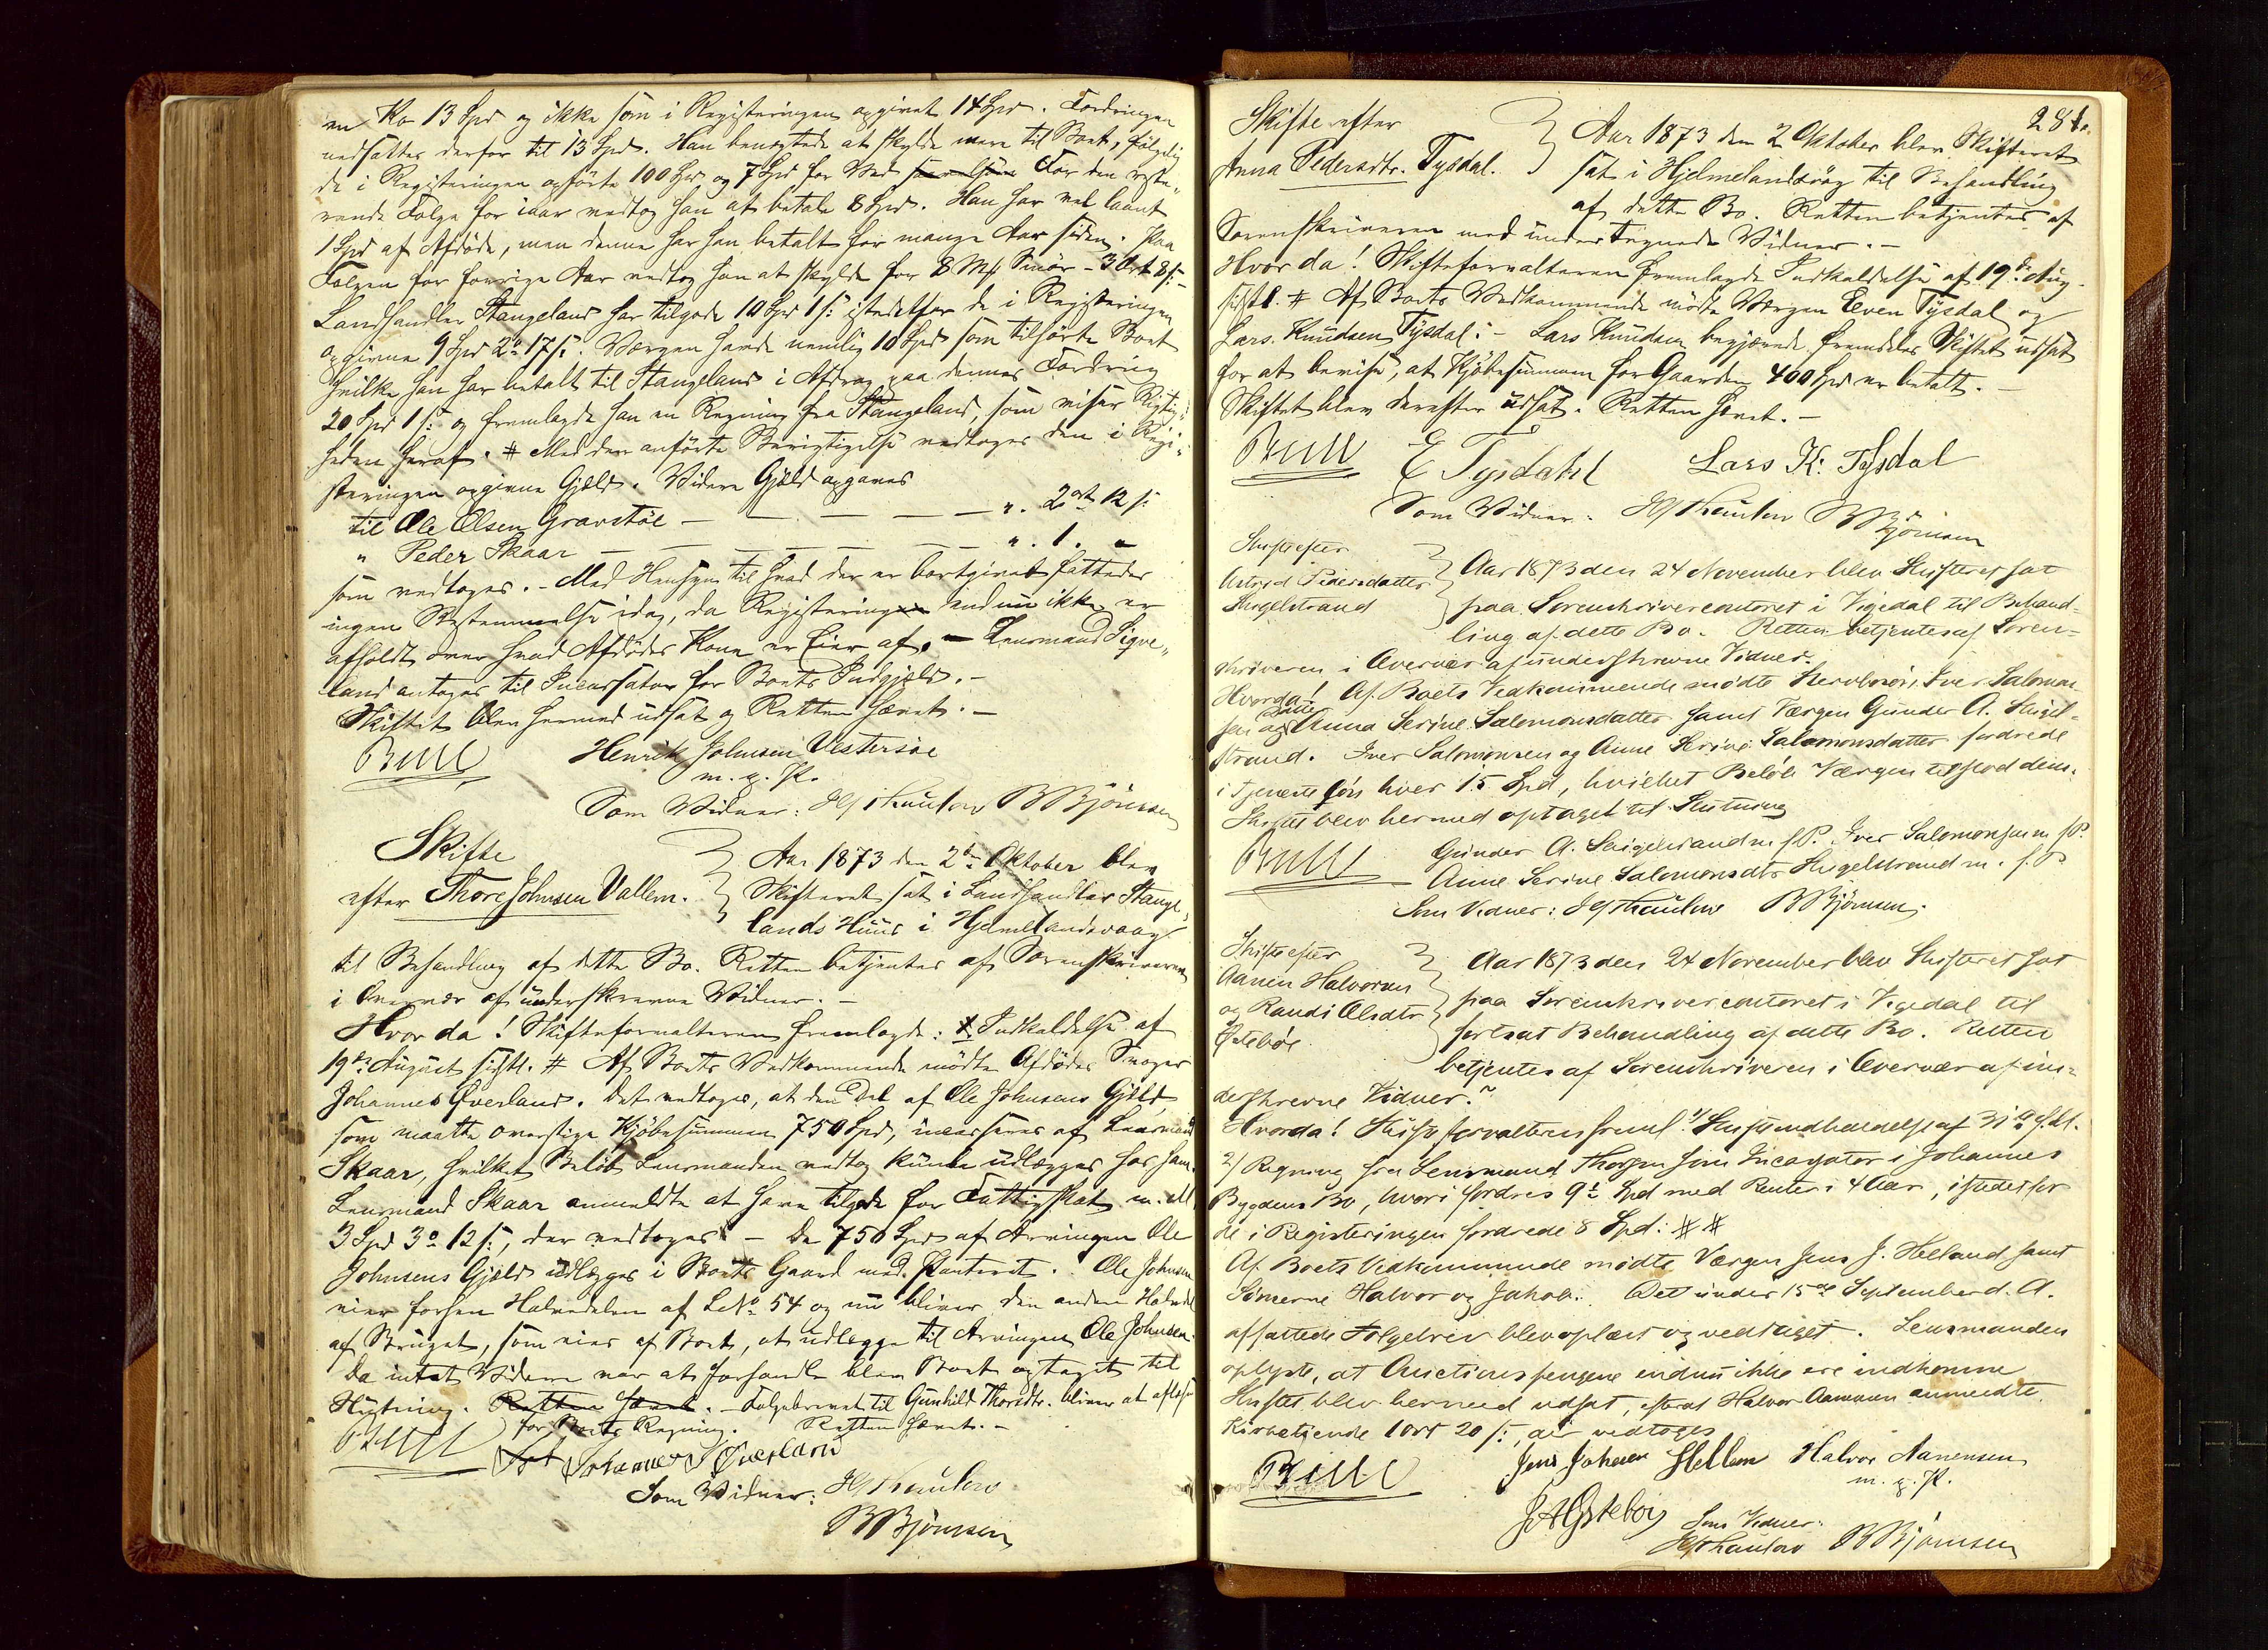 en Ko 13 Spd og ikke som i Registeringen opgivet 14 Spd. Fordringen
nedsattes derfor til 13 Spd. Han benegtede at skylde mere til Boet, følgelig
de i Registeringen opførte 100 Spd og 7 Spd for Ved For den reste-
rende Folge for iaar vedtog han at betale 8 Spd. Han har vel laant
1 Spd af Afdøde, men denne har han betalt for mange Aar siden. Paa
Folgen for forrige Aar vedtog han at skylde for 8 Mk Smør - 3 Ort 8 s: -
Landhandler Stangeland har tilgode 10 Spd 1 s: istedetfor de i Registeringen
opgivne 9 Spd 2 o 17 s:. Værgen havde nemlig 10 Spd som tilhørte Boet
hvilke han har betalt til Stangeland i Afdrag paa dennes Fordring
20 Spd 1 s: og fremlagde han en Regning fra Stangeland, som viser Rigtig-
heden heraf. # Med den anførte Berigtigelse vedtoges den i Regi-
steringen opgivne Gjæld. Videre Gjæld opgaves
til Ole Olsen Gravstøl — — — — ". 2 ort 12 s:
" Peder Skaar — — — — — ". 1. "
som vedtoges. - Med Hensyn til hvad der er bortgivet fattedes
ingen Bestemmelse idag, da Registering endnu ikke er
afholdt over hvad Afdødes Kone er Eier af. — Lensmand Sigve-
land antoges til Incassator for Boets Indgjæld. -
Skiftet blev hermed udsat og Retten hævet. -
Bull Henrik Johnsen Vestersøe
m. p. P.
Som Vidner: B Bjørnsen
Skifte } Aar 1873 den 2den Oktober blev
efter Thore Johnsen Vallem. } Skifteret sat i Landhandler Stange-
lands Huus i Hjelmelandsvaag
til Behandling af dette Bo. Retten betjentes af Sorenskriveren
i Overvær af underskrevne Vidner. -
Hvorda! Skifteforvalteren fremlagde: Indkaldelse af
19de August sidstl. # Af Boets Vedkommende mødte Afdødes Svoger
Johannes Øverland. Det vedtoges, at den Del af Ole Johnsens Gjæld
som maatte overstige Kjøbesummen 750 Spd, incasseres af Lensmand
Skaar, hvilket Beløb Lensmanden vedtog kunde udlægges hos ham.
Lensmand Skaar anmeldte at have tilgode for Fattigskat m. All.
3 Spd 3 o 12 s:, der vedtoges - De 750 Spd af Arvingen Ole
Johnsens Gjæld udlægges i Boets Gaard med Panteret. Ole Johnsen
eier forhen Halvdelen af L. No 54 og nu bliver den anden Halvdel
af Bruget, som eies af Boet, at udlægge til Arvingen Ole Johnsen.
Da intet Videre var at forhandle blev Boet optaget til
Slutning. Retten hævet. - Folgebrevet til Gunhild Thoresdtr. bliver at aflæse
for Boets Regning. Retten hævet. -
Bull Johannes Øverland
Som Vidner:
B Bjørnsen
281.
Skifte efter } Aar 1873 den 2 Oktober blev Skifteret
Anna Pedersdtr. Tysdal. } sat i Hjelmelandsvaag til Behandling
af dette Bo. Retten betjentes af
Sorenskriveren med undertegnede Vidner. -
Hvorda! Skifteforvalteren fremlagde Indkaldelse af 19de Aug.
sidstl. # Af Boets Vedkommende mødte Værgen Even Tysdal og
Lars Knudsen Tysdal: - Lars Knudsen begjærede fremdeles Skiftet udsat
for at bevise, at Kjøbesummen for Gaarden 400 Spd er betalt. -
Skiftet blev derefter udsat. Retten hævet. -
Bull E Tysdahl Lars K: Tysdal
Som Vidner: B Bjørnsen
Skifte efter
Astrid Pedersdatter } Aar 1873 den 24 November blev Skifteret sat
Skigelstrand } paa Sorenskrivercontoret i Vigedal til Behand-
ling af dette Bo. Retten betjentes af Soren-
skriveren i Overvær af underskrevne Vidner.
Hvorda! Af Boets Vedkommende mødte Stervbosøn, Iver Salomon-
sen og Anna Serine Salomonsdatter samt Værgen Gunder A. Skigel-
strand. Iver Salomonsen og Anne Serine Salomonsdatter fordrede
i Tjenesteløn hver 15 Spd, hvilket Beløb Værgen tilstod dem.
Skiftet blev hermed optaget til Slutning
Bull Gunder A. Skigelstrand m. f. P. Iver Salomonsen m f P.
Anne Serine Salomonsdtr Skigelstrand m. f. P
Som Vidner: B Bjørnsen.
Skifte efter
Aanen Halvorsen } Aar 1873 den 24 November blev Skifteret sat
og Randi Olsdtr } paa Sorenskrivercontoret i Vigedal til
Østebøe } fortsat Behandling af dette Bo. Retten
betjentes af Sorenskriveren i Overvær af un-
derskrevne Vidner.
Hvorda! Skifteforvalteren freml. 1/ Skifteindkaldelse af 31te f. M.
2/ Regning fra Lensmand Thorsen som Incasator i Johannes
Bygdens Bo, hvori fordres 9½ Spd med Renter i 4 Aar, istedetfor
de i Registeringen fordrede 8 Spd: # #
Af Boets Vedkommende mødte Værgen Jens J. Helland samt
Sønnerne Halvor og Jakob. Det under 15de September d. A.
affattede Folgebrev blev oplæst og vedtaget. Lensmanden
oplyste, at Auctionspengene endnu ikke ere indkomne
Skiftet blev hermed udsat, efterat Halvor Aanensen anmeldte
1 ort 20 s:, der vedtoges
Bull Jens Johnsen Hellem Halvor Aanensen
m. p. P.
J A Østebø Som Vidner:
B Bjørnsen